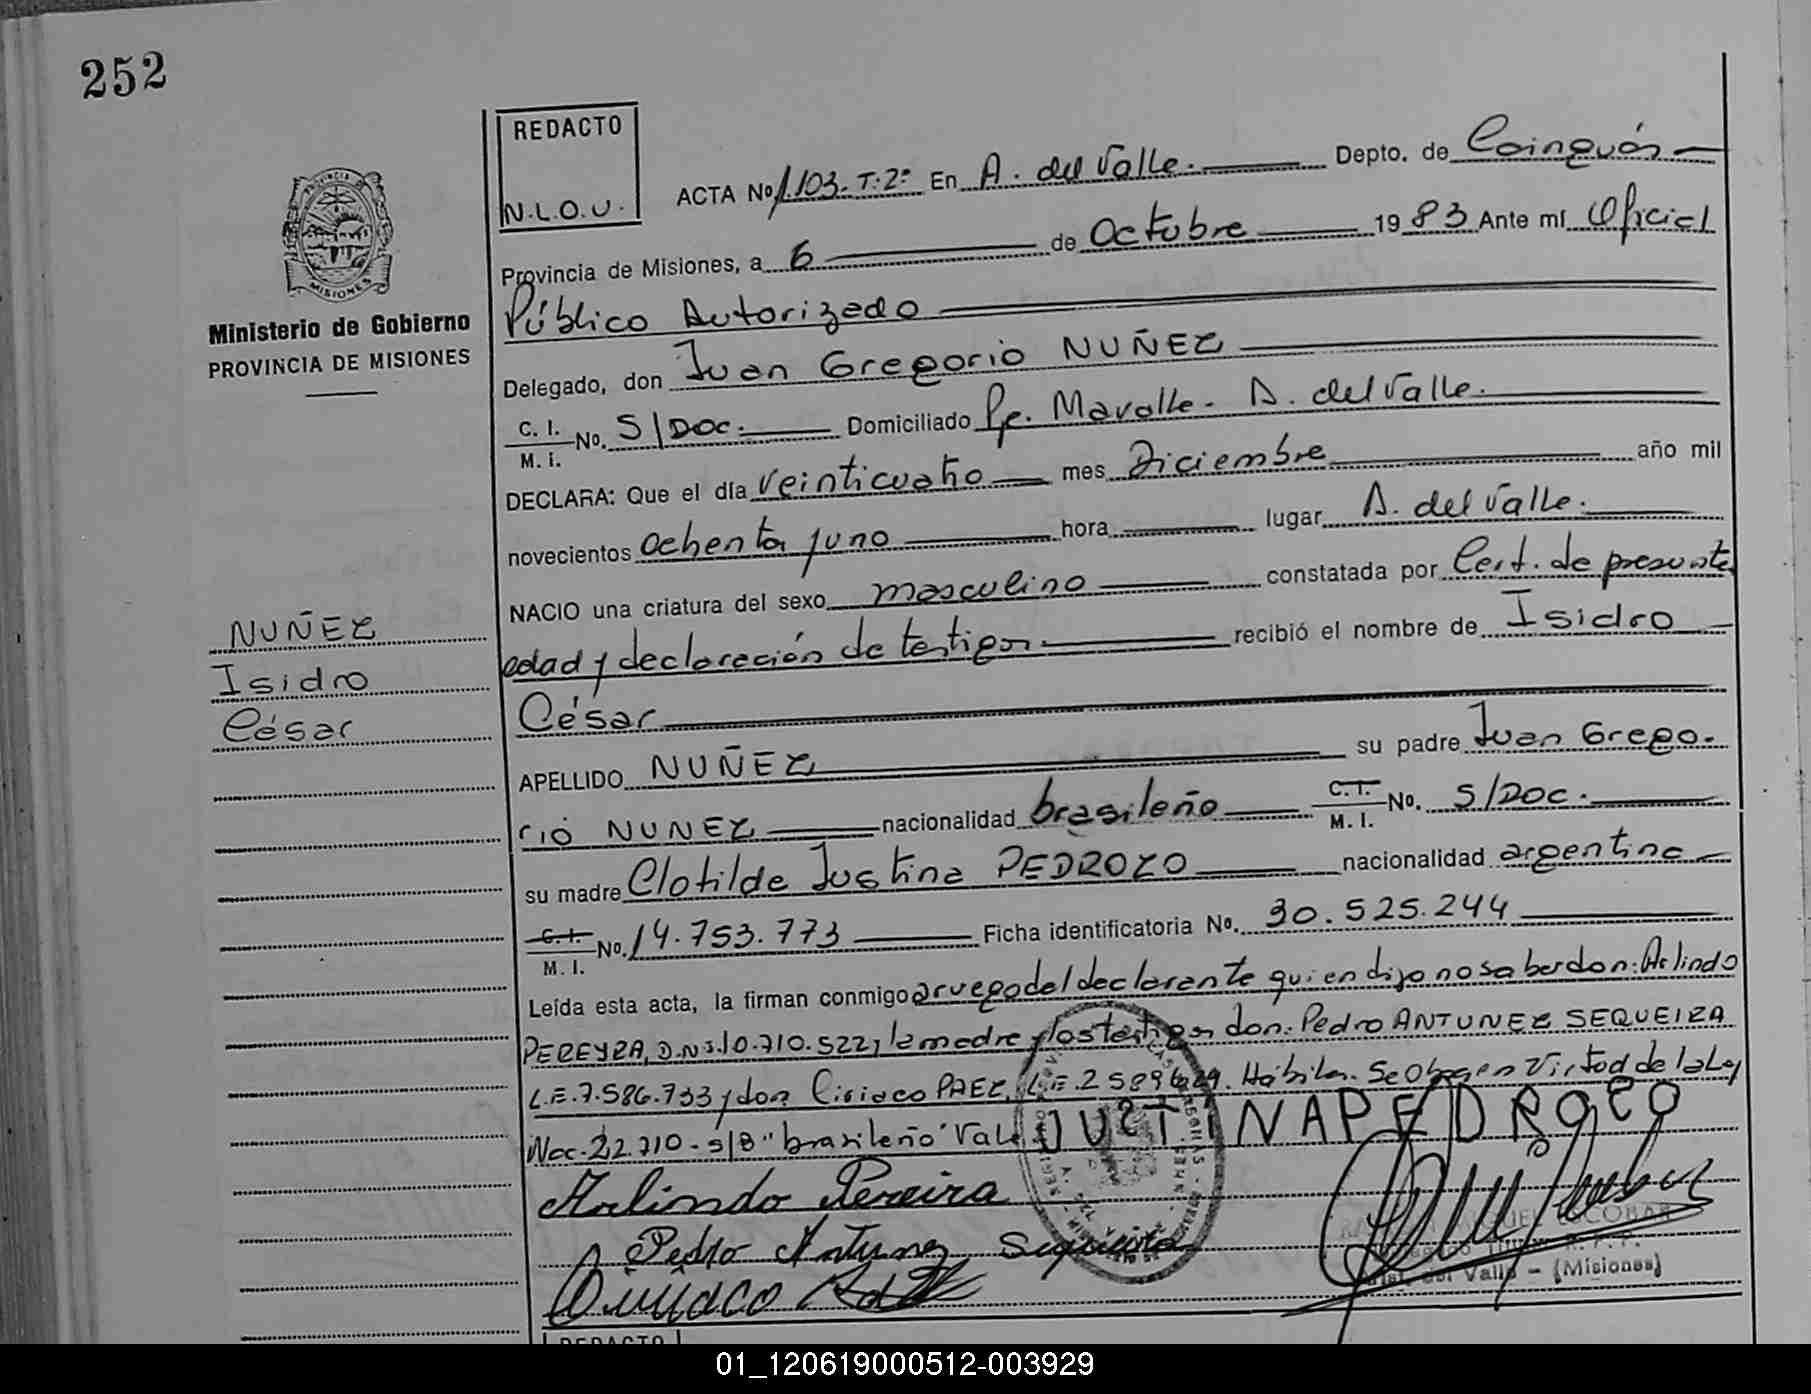 252
REDACTO
N.L.O.U.
PROVINCIA DE
MISIONES
Ministerio de Gobierno
PROVINCIA DE MISIONES
ACTA No 1.103-T:2º En A. del Valle. Depto. de Cainguás
Provincia de Misiones, a 6 de Octubre 1983 Ante mí Oficial
Público Autorizado
Delegado, don Juan Gregorio NUÑEZ
C. I. M. I. No. S/Doc. Domiciliado Pje. Mavalle - A. del Valle.
DECLARA: Que el día veinticuatro mes Diciembre año mil
novecientos ochenta y uno hora lugar A. del Valle.
NACIO una criatura del sexo masculino constatada por Cert. de presunta
edad y declaración de testigos. recibió el nombre de Isidro
César
APELLIDO NUÑEZ su padre Juan Grego-
rio NUNEZ nacionalidad brasileño C.I. M. I. No. S/Doc.
su madre Clotilde Justina PEDROZO nacionalidad argentina
C.I. M. I. No. 14.753.773 Ficha identificatoria No. 30.525.244
Leída esta acta, la firman conmigo a ruego del declarante quien dijo no saber don: Arlindo
PEREYRA, D.N.I. 10.710.522, la madre y los testigos don: Pedro ANTUNEZ SEQUEIRA
L.E. 7.586.733 y don Ciriaco PAEZ, L.E. 2589629. Hábiles. Se Obra en Virtud de la Ley
Nac. 22.710 - S/B "brasileño" Vale
JUSTINA PEDROZO
Arlindo Pereira
Pedro Antunez Sequeira
Ciriaco
MIGUEL ESCOBAR
del Valle - (Misiones)
NUÑEZ
Isidro
César
REDACTO
01_120619000512-003929